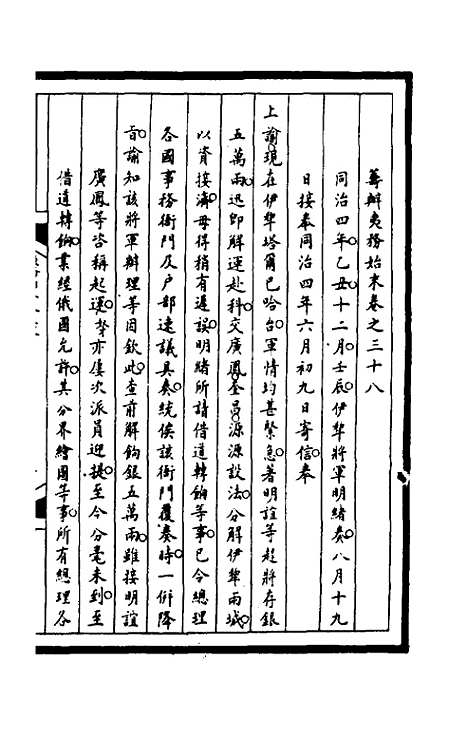 籌辦夷務始末卷之三十八
同治四年乙丑十二月壬辰伊犂將軍明緒奏八月十九
日接奉同治四年六月初九日寄信奉
上諭現在伊犂塔爾巴哈台軍情均甚緊急著明誼等趕將存銀
五萬兩迅即解運赴科交廣鳳奎昌源源設法分解伊犂兩城
以資接濟毋得稍有遲誤明緒所請借道轉餉等事已令總理
各國事務衙門及戶部速議具奏統俟該衙門覆奏時一倂降
旨諭知該將軍辦理等因欽此查前解餉銀五萬兩雖接明誼
廣鳳等咨稱起運奴才亦屢次派員迎提至今分毫未到至
借道轉餉業經俄國允許其分界繪圖等事所有總理各